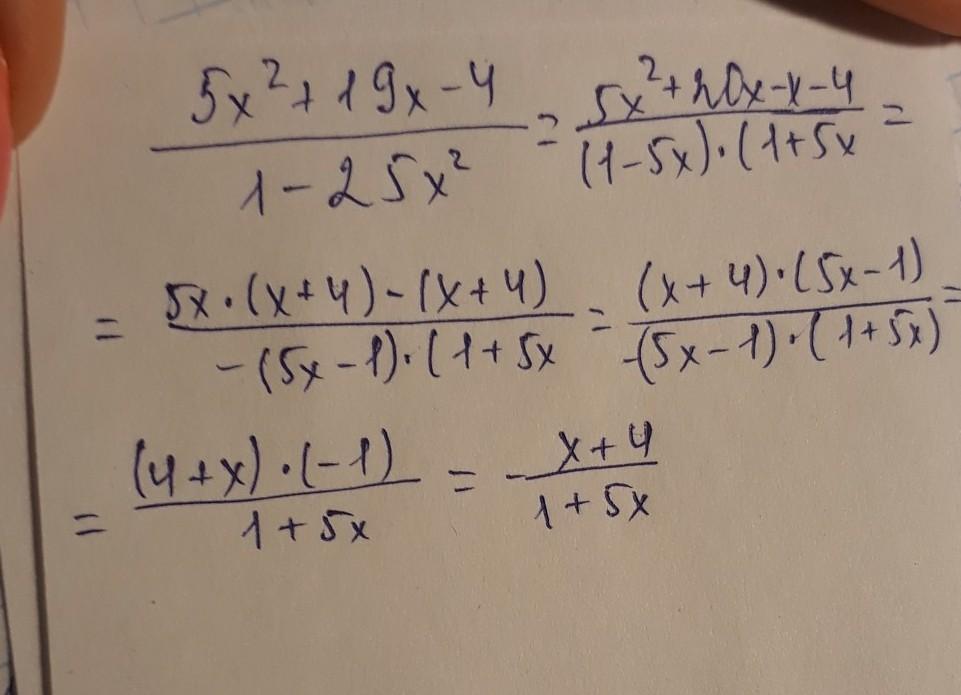 5x²+19x-4/1-25x² = 5x²+20x-x-4/(1-5x)·(1+5x =
= 5x·(x+4)-(x+4)/-(5x-1)·(1+5x = (x+4)·(5x-1)/-(5x-1)·(1+5x) =
= (4+x)·(-1)/1+5x = -x+4/1+5x